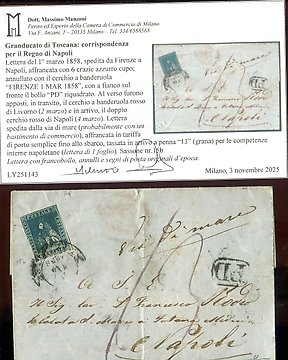 Dott. Massimo Manzoni
Perito ed Esperto della Camera di Commercio di Milano
Via F. Anzani, 1 - 20135 Milano - Tel. 334 6568568
Granducato di Toscana: corrispondenza
per il Regno di Napoli
Lettera del 1° marzo 1858, spedita da Firenze a
Napoli, affrancata con 6 crazie azzurro cupo,
annullato con il cerchio a banderuola
"FIRENZE 1 MAR 1858", con a fianco sul
fronte il bollo "PD" riquadrato. Al verso furono
apposti, in transito, il cerchio a banderuola rosso
di Livorno (2 marzo) e in arrivo, il doppio
cerchio rosso di Napoli (4 marzo). Lettera
spedita dalla via di mare (probabilmente con un
bastimento di commercio), affrancata in tariffa
di porto semplice fino allo sbarco, tassata in arrivo a penna "13" (grana) per le competenze
interne napoletane (lettera di 1 foglio). Sassone n.
Lettera con francobollo, annulli e segni di posta originali d'epoca.
LY251143 Milano, 3 novembre 2025
Via di mare
A S. E.
PD
Il Sig. Francesco
Napoli